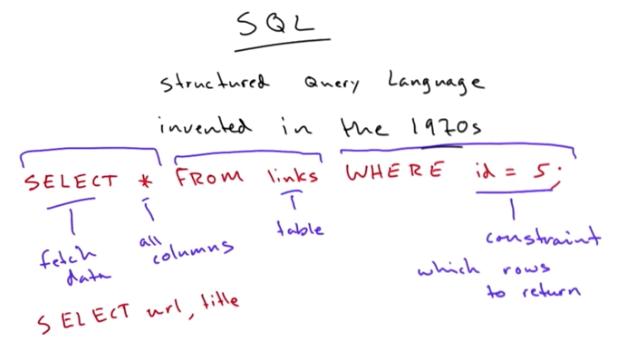 SQL
Structured Query Language
invented in the 1970s
SELECT * FROM links WHERE id = 5;
fetch data
all columns
table
constraint
which rows
to return
SELECT url, title